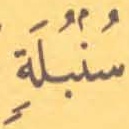 سُنْۢبُلَةٍ